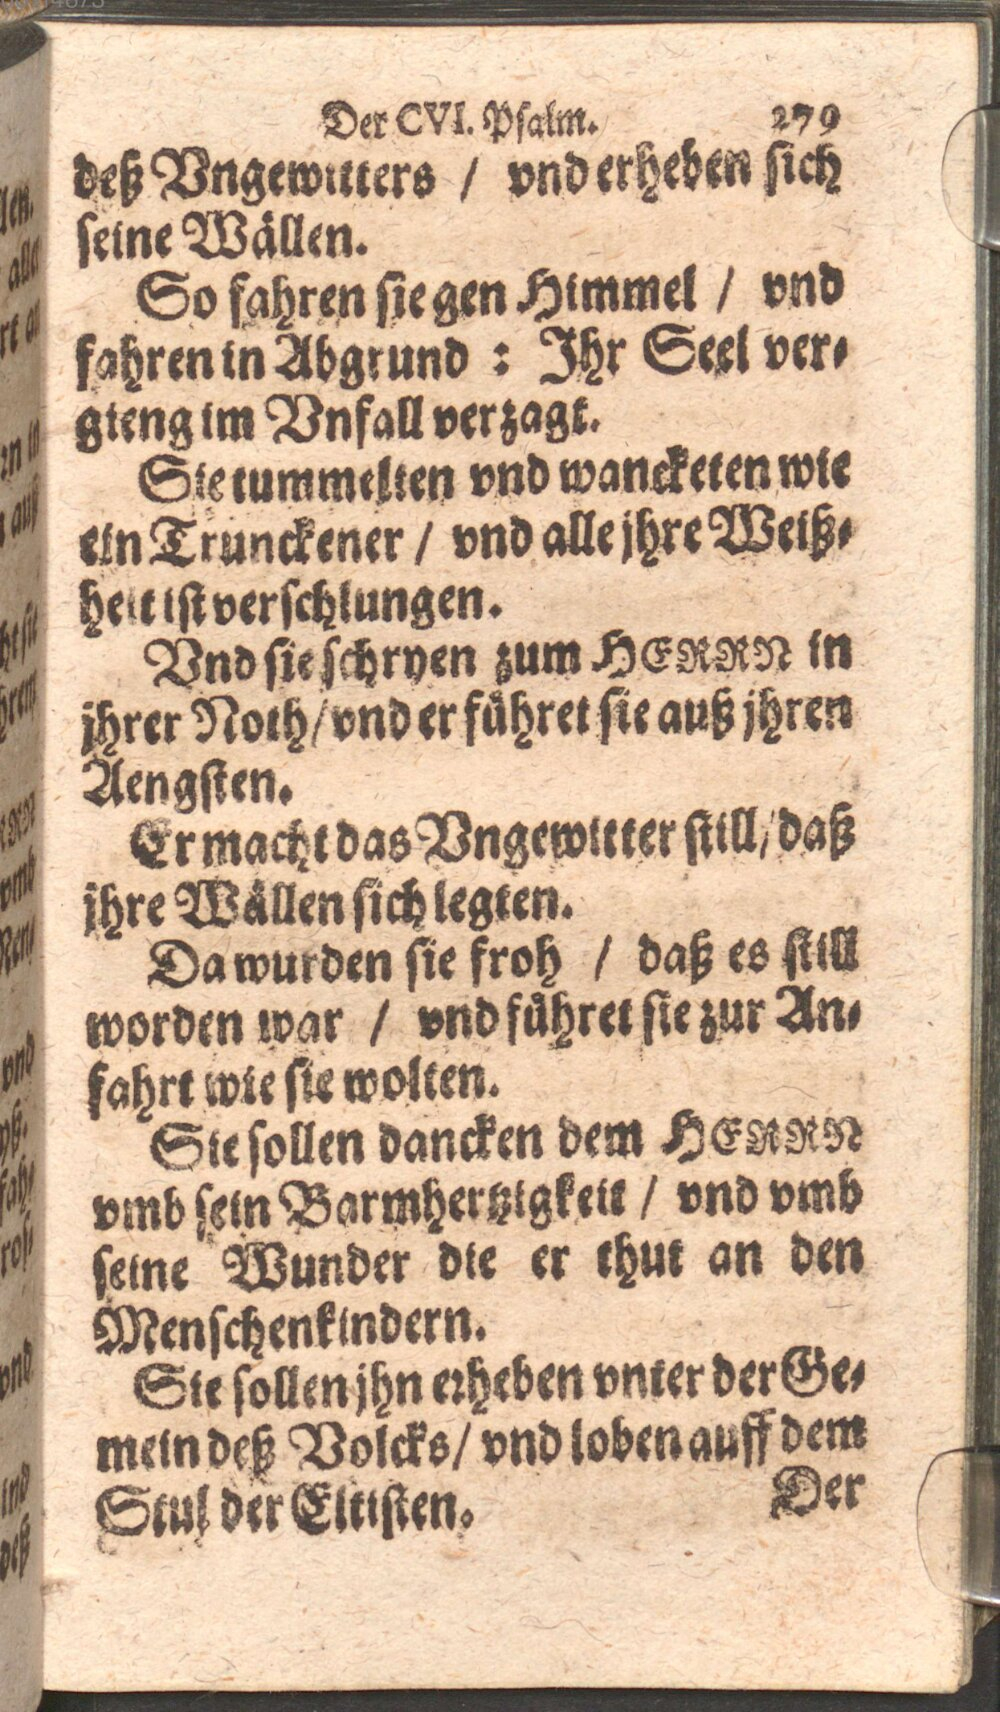 Der CVI. Psalm. 279
deß Vngewitters / vnd erheben sich
seine Wällen.
So fahren sie gen Himmel / vnd
fahren in Abgrund : Ihr Seel ver-
gieng im Vnfall verzagt.
Sie tummelten vnd wancketen wie
ein Trunckener / vnd alle jhre Weiß-
heit ist verschlungen.
Vnd sie schryen zum HERRN in
jhrer Noth / vnd er führet sie auß jhren
Aengsten.
Er macht das Vngewitter still / daß
jhre Wällen sich legten.
Da wurden sie froh / daß es still
worden war / vnd führet sie zur An-
fahrt wie sie wolten.
Sie sollen dancken dem HERRN
vmb sein Barmhertzigkeit / vnd vmb
seine Wunder die er thut an den
Menschenkindern.
Sie sollen jhn erheben vnter der Ge-
mein deß Volcks / vnd loben auff dem
Stul der Eltisten.
Der